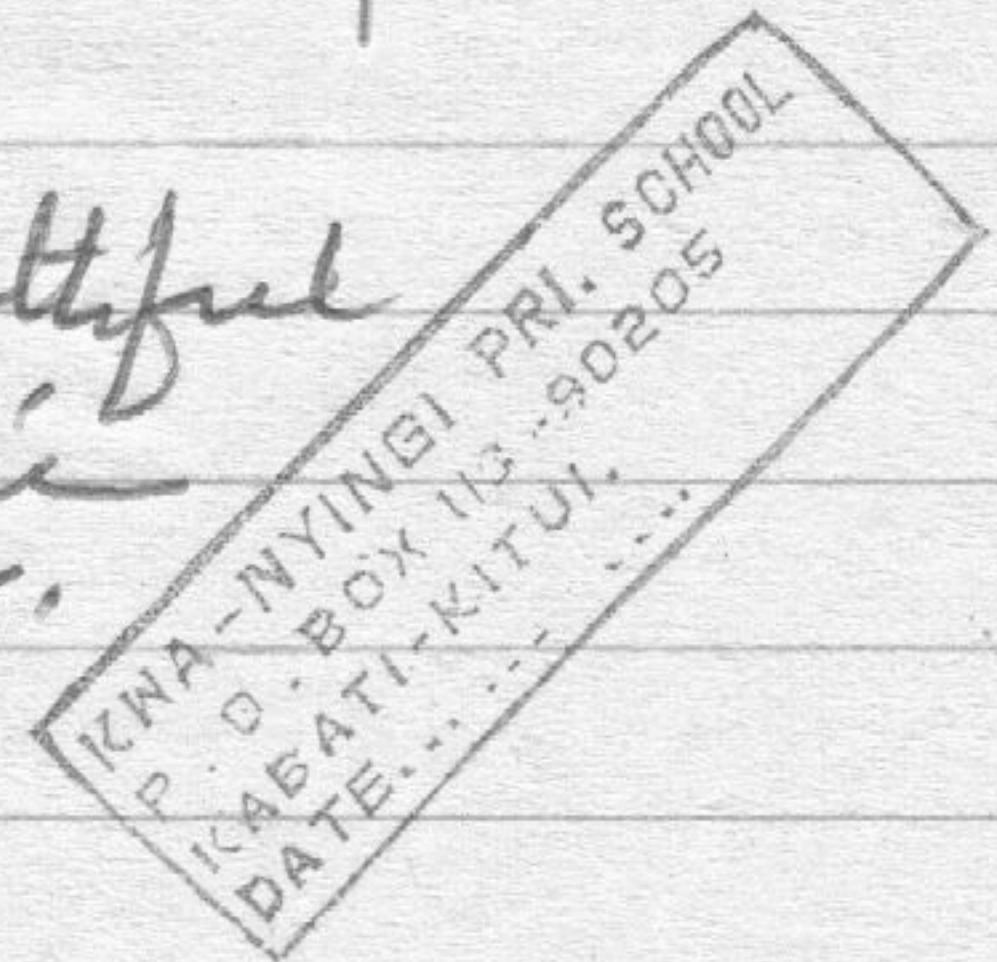 KWA-NYINGI PRI. SCHOOL
P. O. BOX 113 -90205
KABATI-KITUI.
DATE.